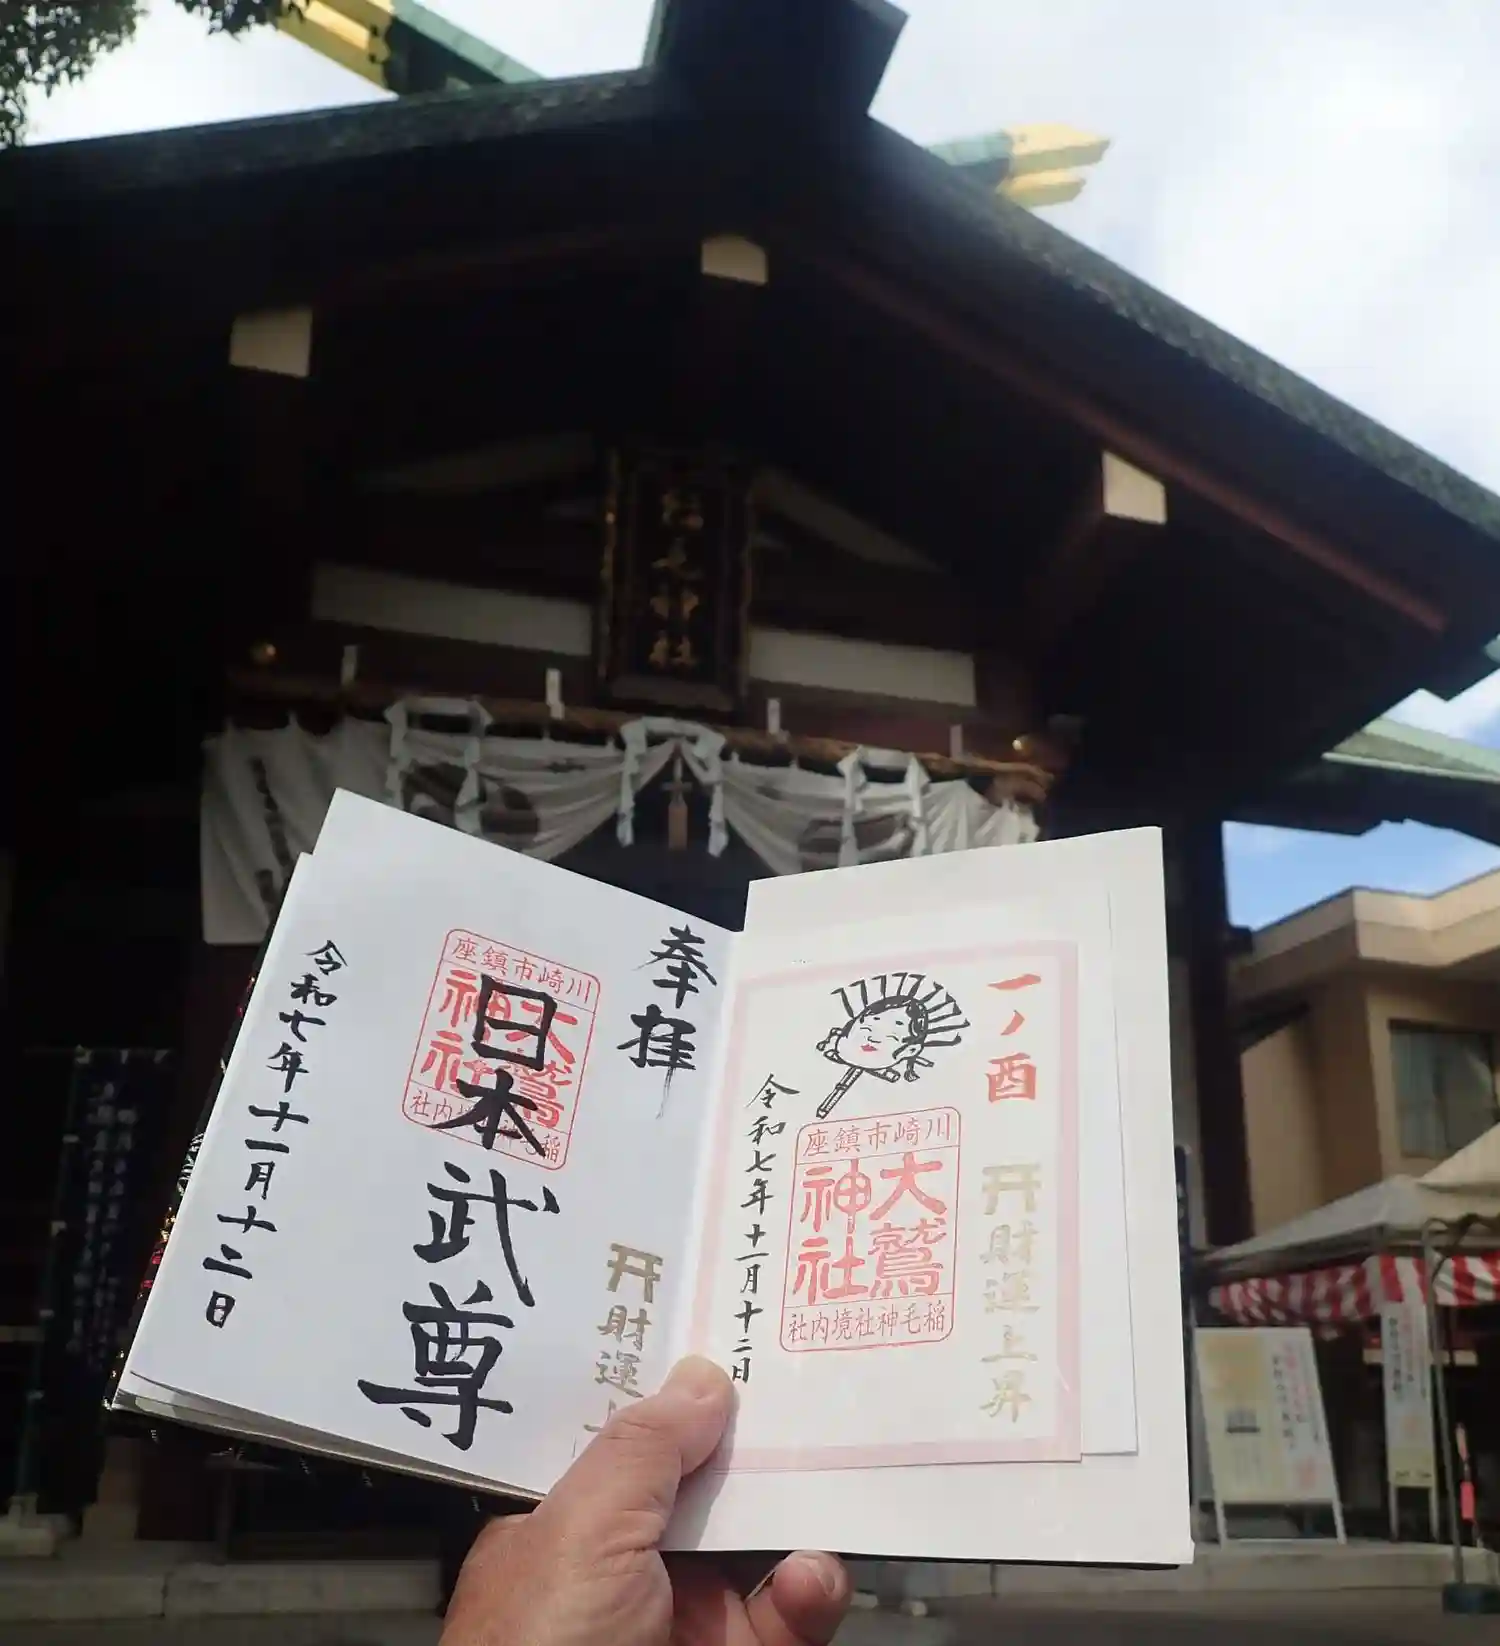 稲毛神社
奉拝
開財運上
川崎市鎮座
大鷲神社
稲毛神社境内社
日本武尊
令和七年十一月十二日
一ノ酉
開財運上昇
川崎市鎮座
大鷲神社
稲毛神社境内社
令和七年十一月十二日